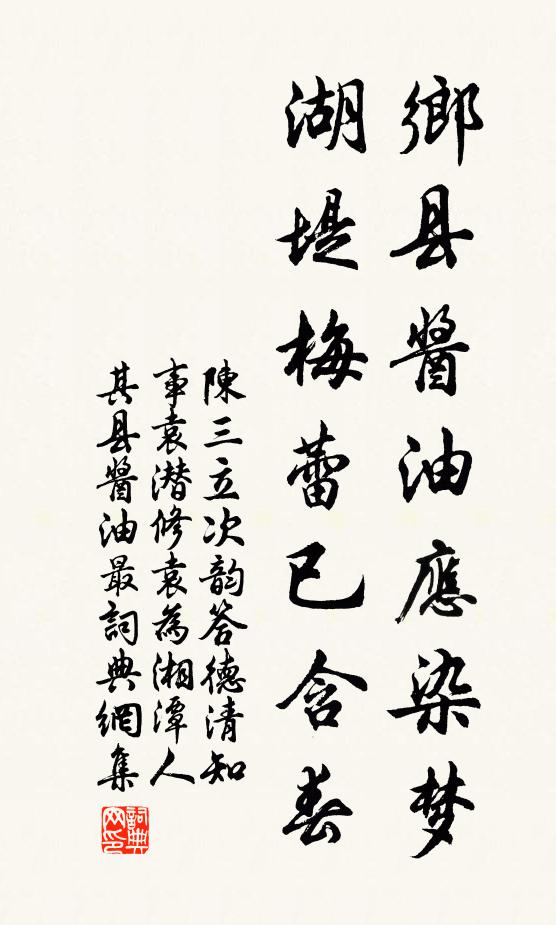 鄉县醬油應染梦
湖堤梅蕾已含春
陳三立次韵答德清知
事袁潜修袁為湘潭人
其县醬油最詞典網集
詞典
网印